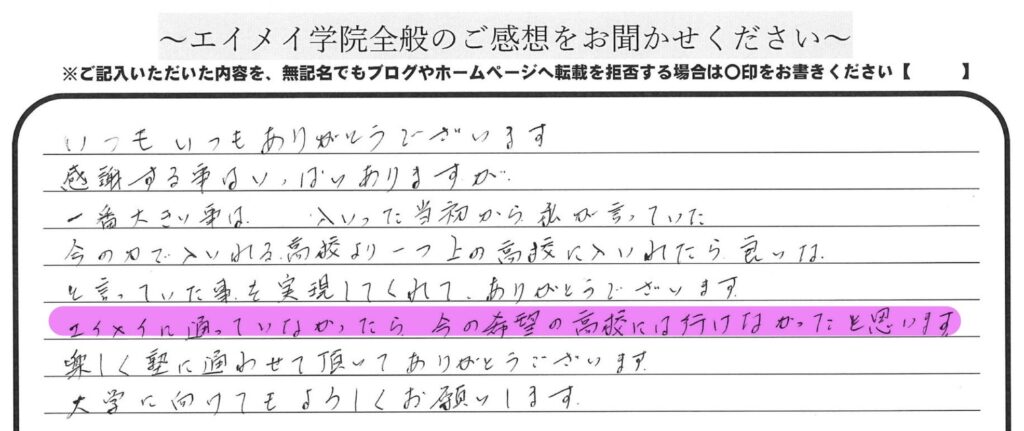 ～エイメイ学院全般のご感想をお聞かせください～
※ご記入いただいた内容を、無記名でもブログやホームページへ転載を拒否する場合は〇印をお書きください【　　　】
いつもいつもありがとうございます
感謝する事はいっぱいありますが、
一番大きい事は、入いった当初から私が言っていた
今の力で入いれる高校より一つ上の高校に入いれたら良いな
と言っていた事を実現してくれて、ありがとうございます
エイメイに通っていなかったら今の希望の高校には行けなかったと思います
楽しく塾に通わせて頂いてありがとうございます
大学に向けてもよろしくお願いします